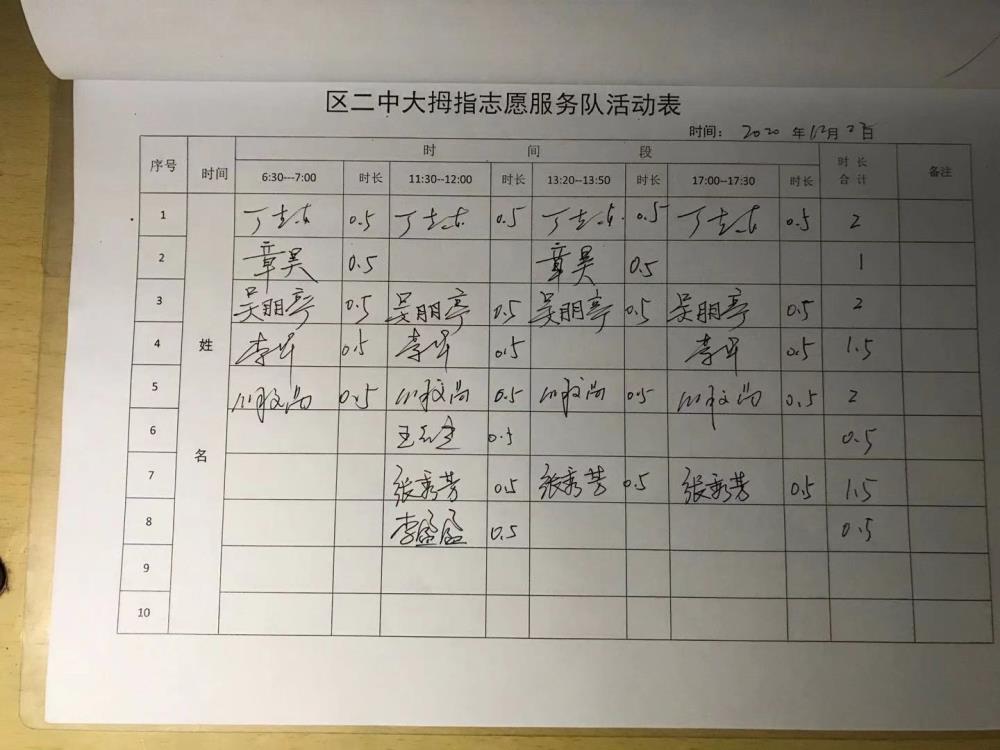 区二中大拇指志愿服务队活动表
时间： 2020 年 12月 23日
序号 时间 时间段 时长合计 备注
6:30---7:00 时长 11:30--12:00 时长 13:20--13:50 时长 17:00--17:30 时长
姓名
1 0.5 0.5 0.5 0.5 2
2 章昊 0.5 章昊 1
0.5
3 吴明亭 0.5 吴明亭 0.5 吴明亭 0.5 吴明亭 0.5 2
4 李军 0.5 李军 0.5 李军 0.5 1.5
5 0.5 0.5 0.5 0.5 2
6 0.5 0.5
7 张秀芳 0.5 张秀芳 0.5 张秀芳 0.5 1.5
8 李盛盛 0.5 0.5
9
10